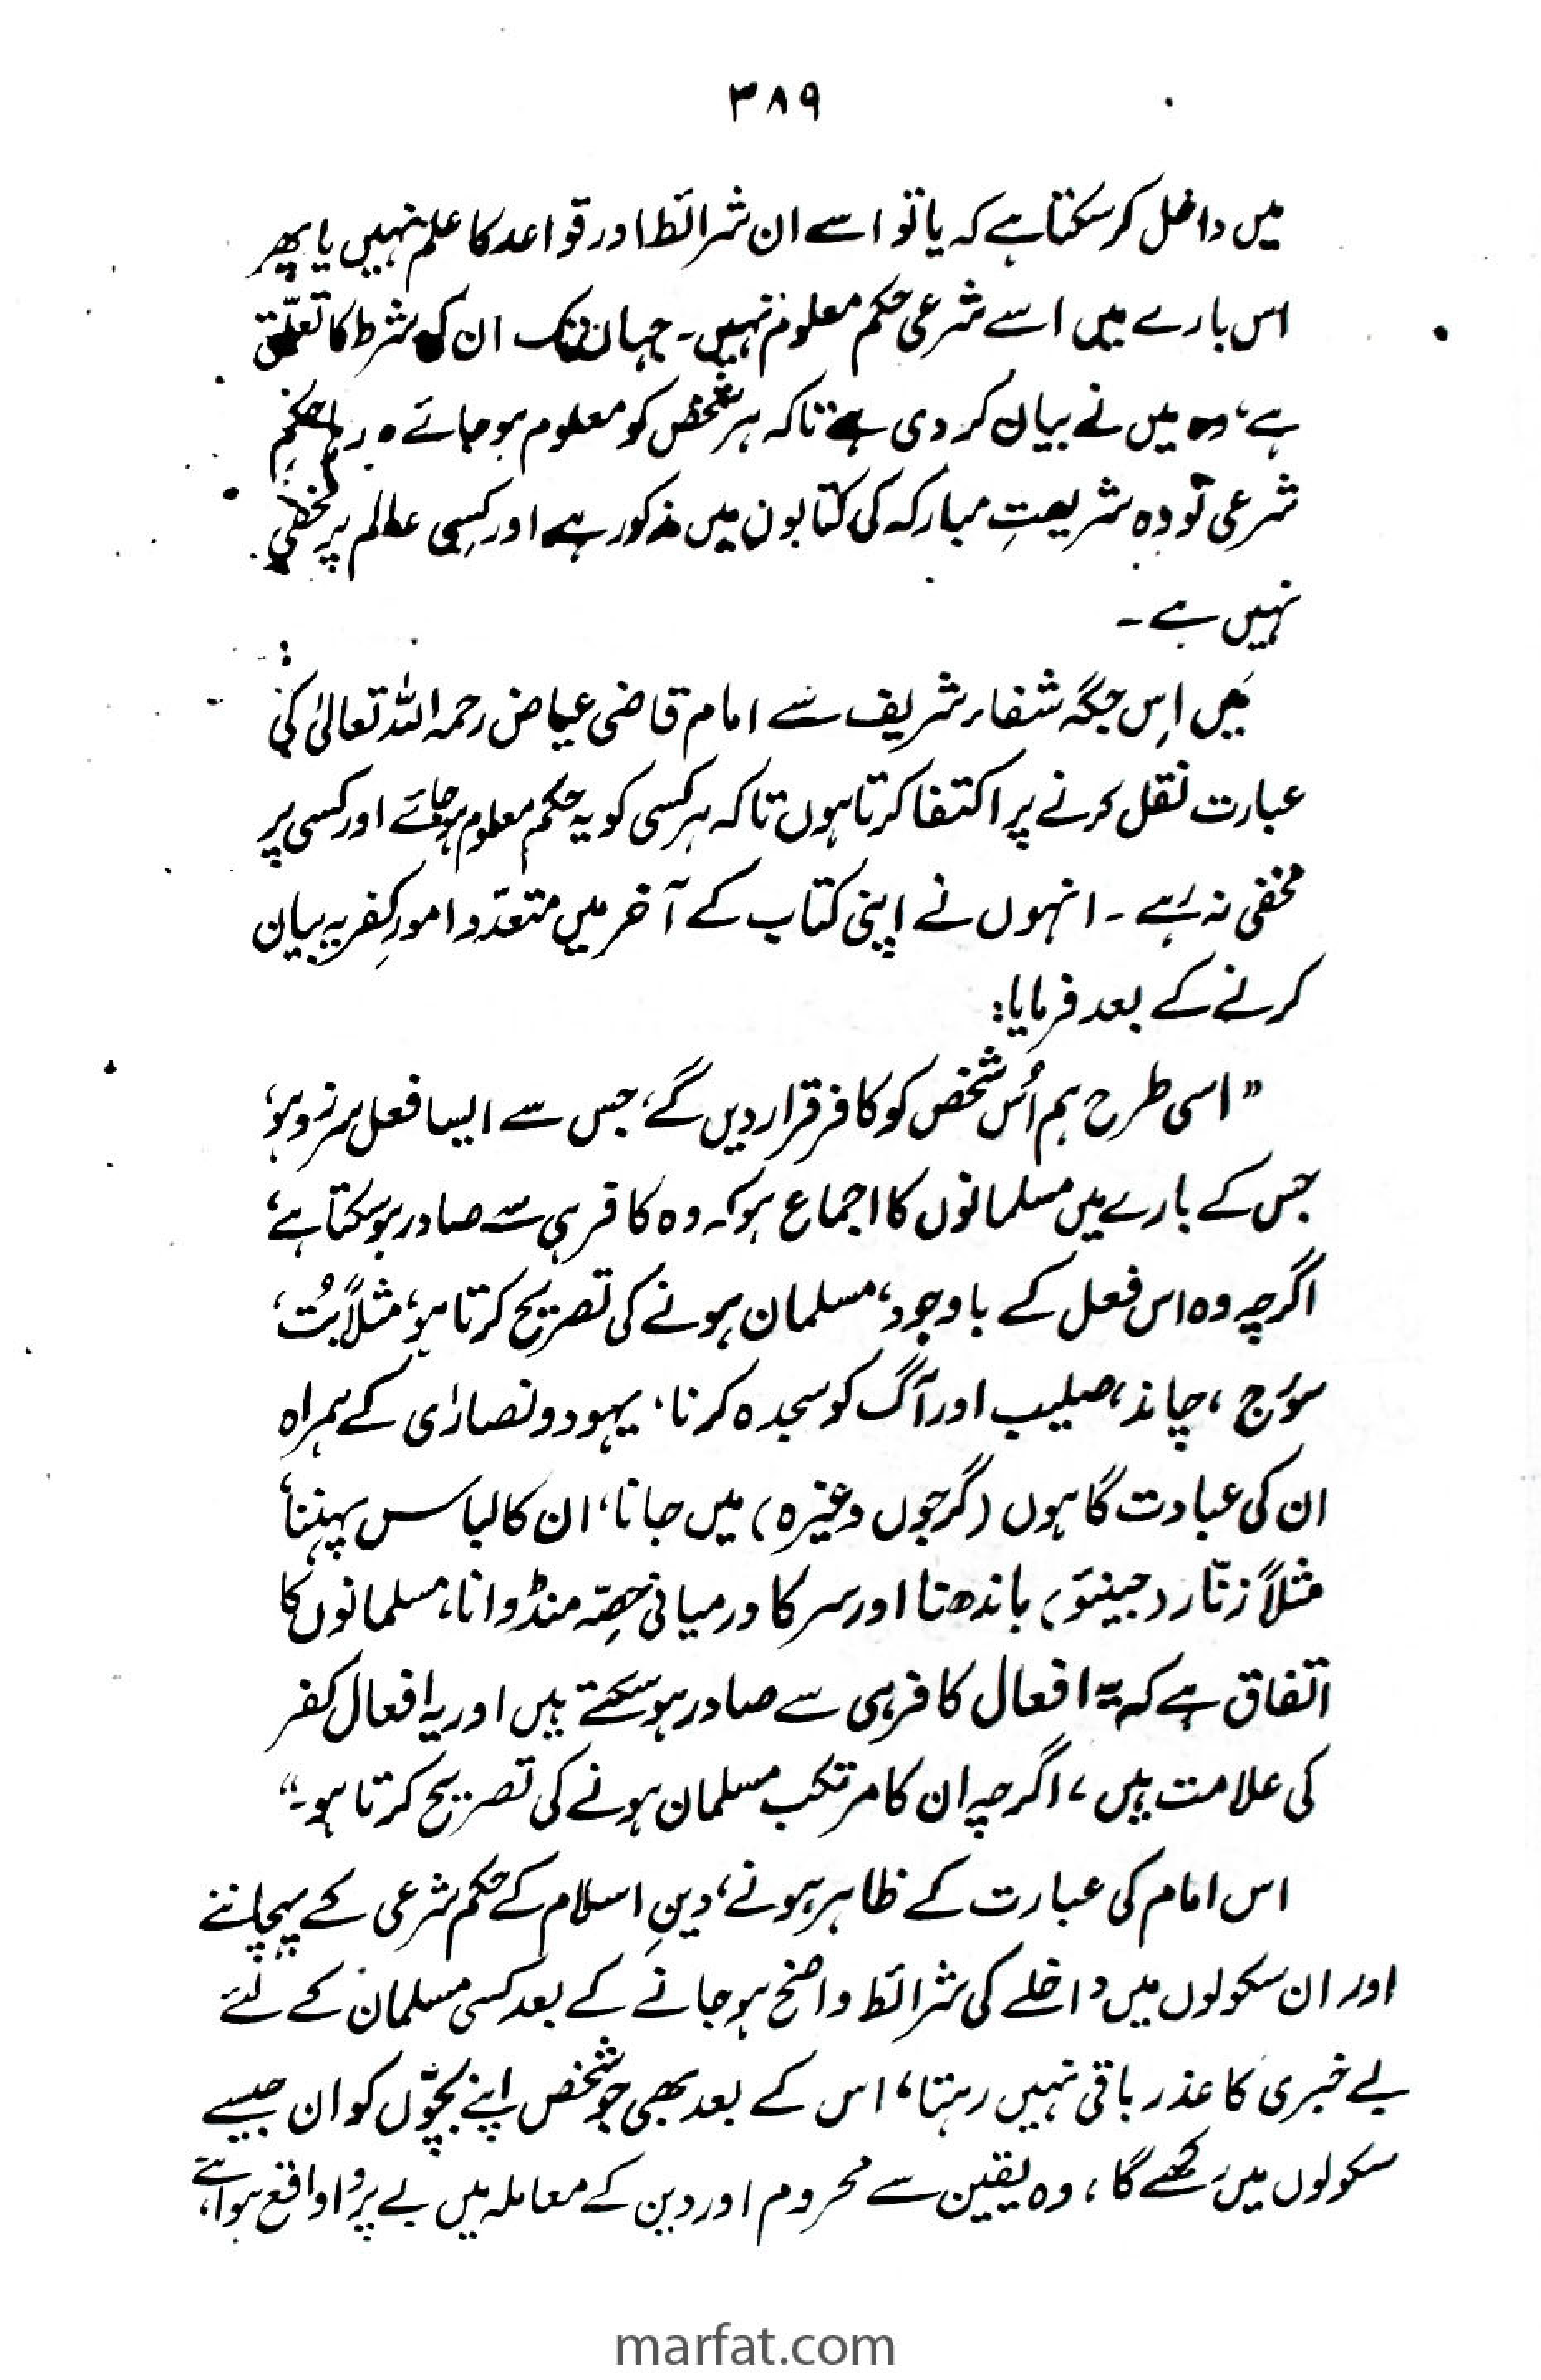 ۳۸۹
میں داخل کر سکتا ہے کہ یا تو اسے ان شرائط اور قواعد کا علم نہیں یا پھر
اس بارے میں اسے شرعی حکم معلوم نہیں۔ جہاں تک ان کی شرط کا تعلّق
ہے، وہ میں نے بیان کر دی ہے تاکہ ہر شخص کو معلوم ہو جائے ۰ رہا حکم
شرعی تو وہ شریعتِ مبارکہ کی کتابوں میں مذکور ہے اور کسِی عالم پر مخفی
نہیں ہے ۔
مَیں اِس جگہ شفاء شریف سے امام قاضی عیاض رحمہ اللہ تعالیٰ کی
عبارت نقل کرنے پر اکتفا کرتا ہوں تاکہ ہر کسی کو یہ حکم معلوم ہو جائے اور کسی پر
مخفی نہ رہے ۔ انہوں نے اپنی کتاب کے آخر میں متعدّد امورِ کفریہ بیان
کرنے کے بعد فرمایا:
”اسی طرح ہم اُس شخص کو کافر قرار دیں گے، جس سے ایسا فعل سرزد ہو،
جس کے بارے میں مسلمانوں کا اجماع ہو کہ وہ کافر ہی سے صادر ہو سکتا ہے،
اگرچہ وہ اس فعل کے باوجود، مسلمان ہونے کی تصریح کرتا ہو، مثلاً بُت،
سُورج، چاند، صلیب اور آگ کو سجدہ کرنا، یہود و نصارٰی کے ہمراہ
ان کی عبادت گاہوں (گرجوں وغیرہ) میں جانا، ان کا لباس پہننا،
مثلاً زنّار (جینئو) باندھنا اور سر کا درمیانی حصّہ منڈوانا، مسلمانوں کا
اتفاق ہے کہ یہ افعال کافر ہی سے صادر ہو سکتے ہیں اور یہ افعال کفر
کی علامت ہیں، اگرچہ ان کا مرتکب مسلمان ہونے کی تصریح کرتا ہو۔“
اس امام کی عبارت کے ظاہر ہونے، دینِ اسلام کے حکم شرعی کے پہچاننے
اور ان سکولوں میں داخلے کی شرائط واضح ہو جانے کے بعد کسی مسلمان کے لئے
بے خبری کا عذر باقی نہیں رہتا، اس کے بعد بھی جو شخص اپنے بچّوں کو ان جیسے
سکولوں میں رکھے گا، وہ یقین سے محروم اور دین کے معاملہ میں بے پروا واقع ہوا ہے،
marfat.com